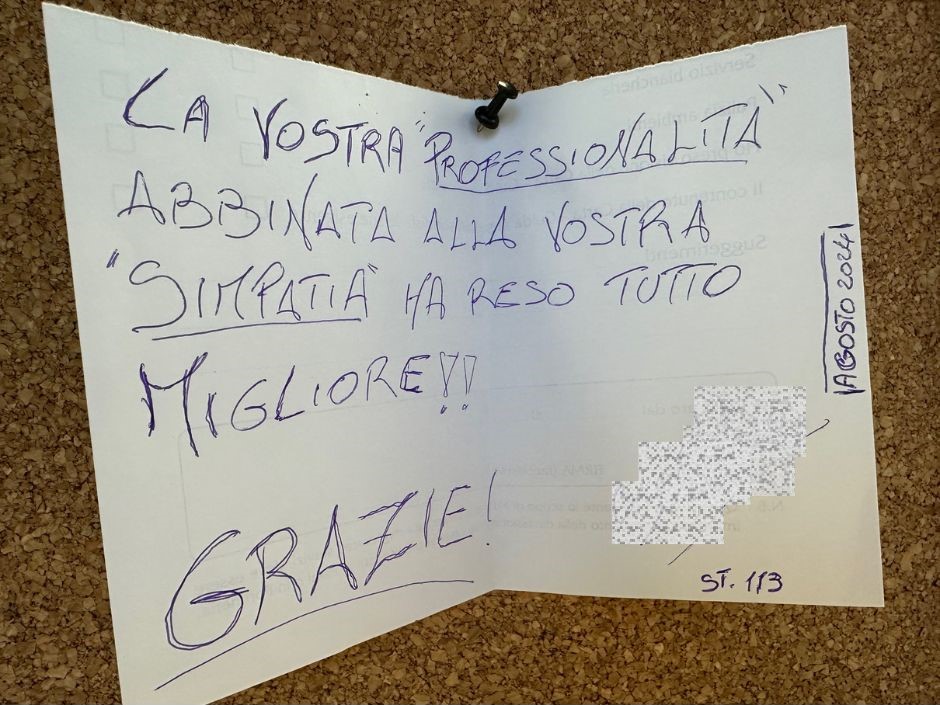 LA VOSTRA "PROFESSIONALITÀ"
ABBINATA ALLA VOSTRA
"SIMPATIA" HA RESO TUTTO
MIGLIORE!!
GRAZIE!
AGOSTO 2024
ST. 113
Servizio biancheria
Il contenuto della
Suggerimenti
FIRMA